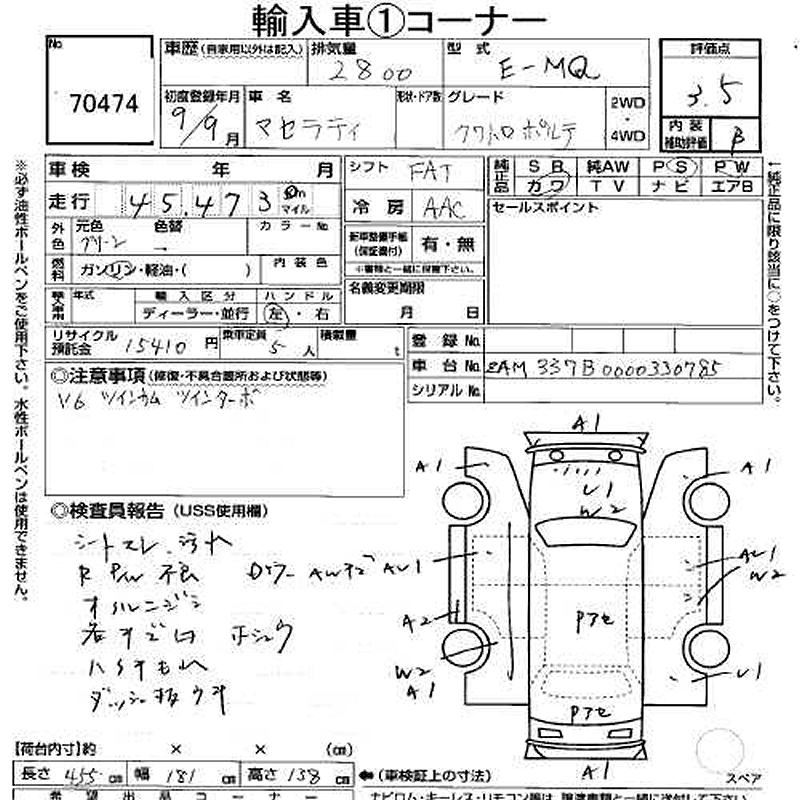 輸入車①コーナー
No. 70474
車歴(自家用以外は記入)
排気量 2800
型式 E-MQ
評価点 3.5
初度登録年月 9/9月
車名 マセラティ
形状・ドア数
グレード クワトロポルテ
2WD・4WD
内装補助評価 B
車検 年 月
走行 45,473 km マイル
シフト FAT
冷房 AAC
純正品 SR 純AW PS PW
カワ TV ナビ エアB
外色 元色 グリーン 色替 ー
カラーNo.
燃料 ガソリン・軽油・( )
内装色
新車整備手帳(保証書付) 有・無
※書類と一緒に保管下さい。
セールスポイント
輸入車用 年式
輸入区分 ディーラー・並行
ハンドル 左・右
名義変更期限 月 日
リサイクル預託金 15410 円
乗車定員 5人
積載量 t
登録No.
車台No. ZAM337B0000330785
シリアルNo.
◎注意事項(修復・不具合箇所および状態等)
V6 ツインカム ツインターボ
◎検査員報告(USS使用欄)
シートスレ、汚れ
R P/W 不良
オイルニジミ
ハンドもれ
ダッシュ板ウキ
A1
A1
A1
U1
W2
AU1
AU1
W2
A2
Pアセ
W2
A1
U1
Pアセ
A1
スペア
【荷台内寸】約 × × (cm)
長さ 455 cm 幅 181 cm 高さ 138 cm
←(車検証上の寸法)
希望出品コーナー
ナビロム・キーレス・リモコン等は、譲渡書類と一緒に送付して下さい
※必ず油性ボールペンをご使用下さい。水性ボールペンは使用できません。
↑純正品に限り該当に○をつけて下さい。